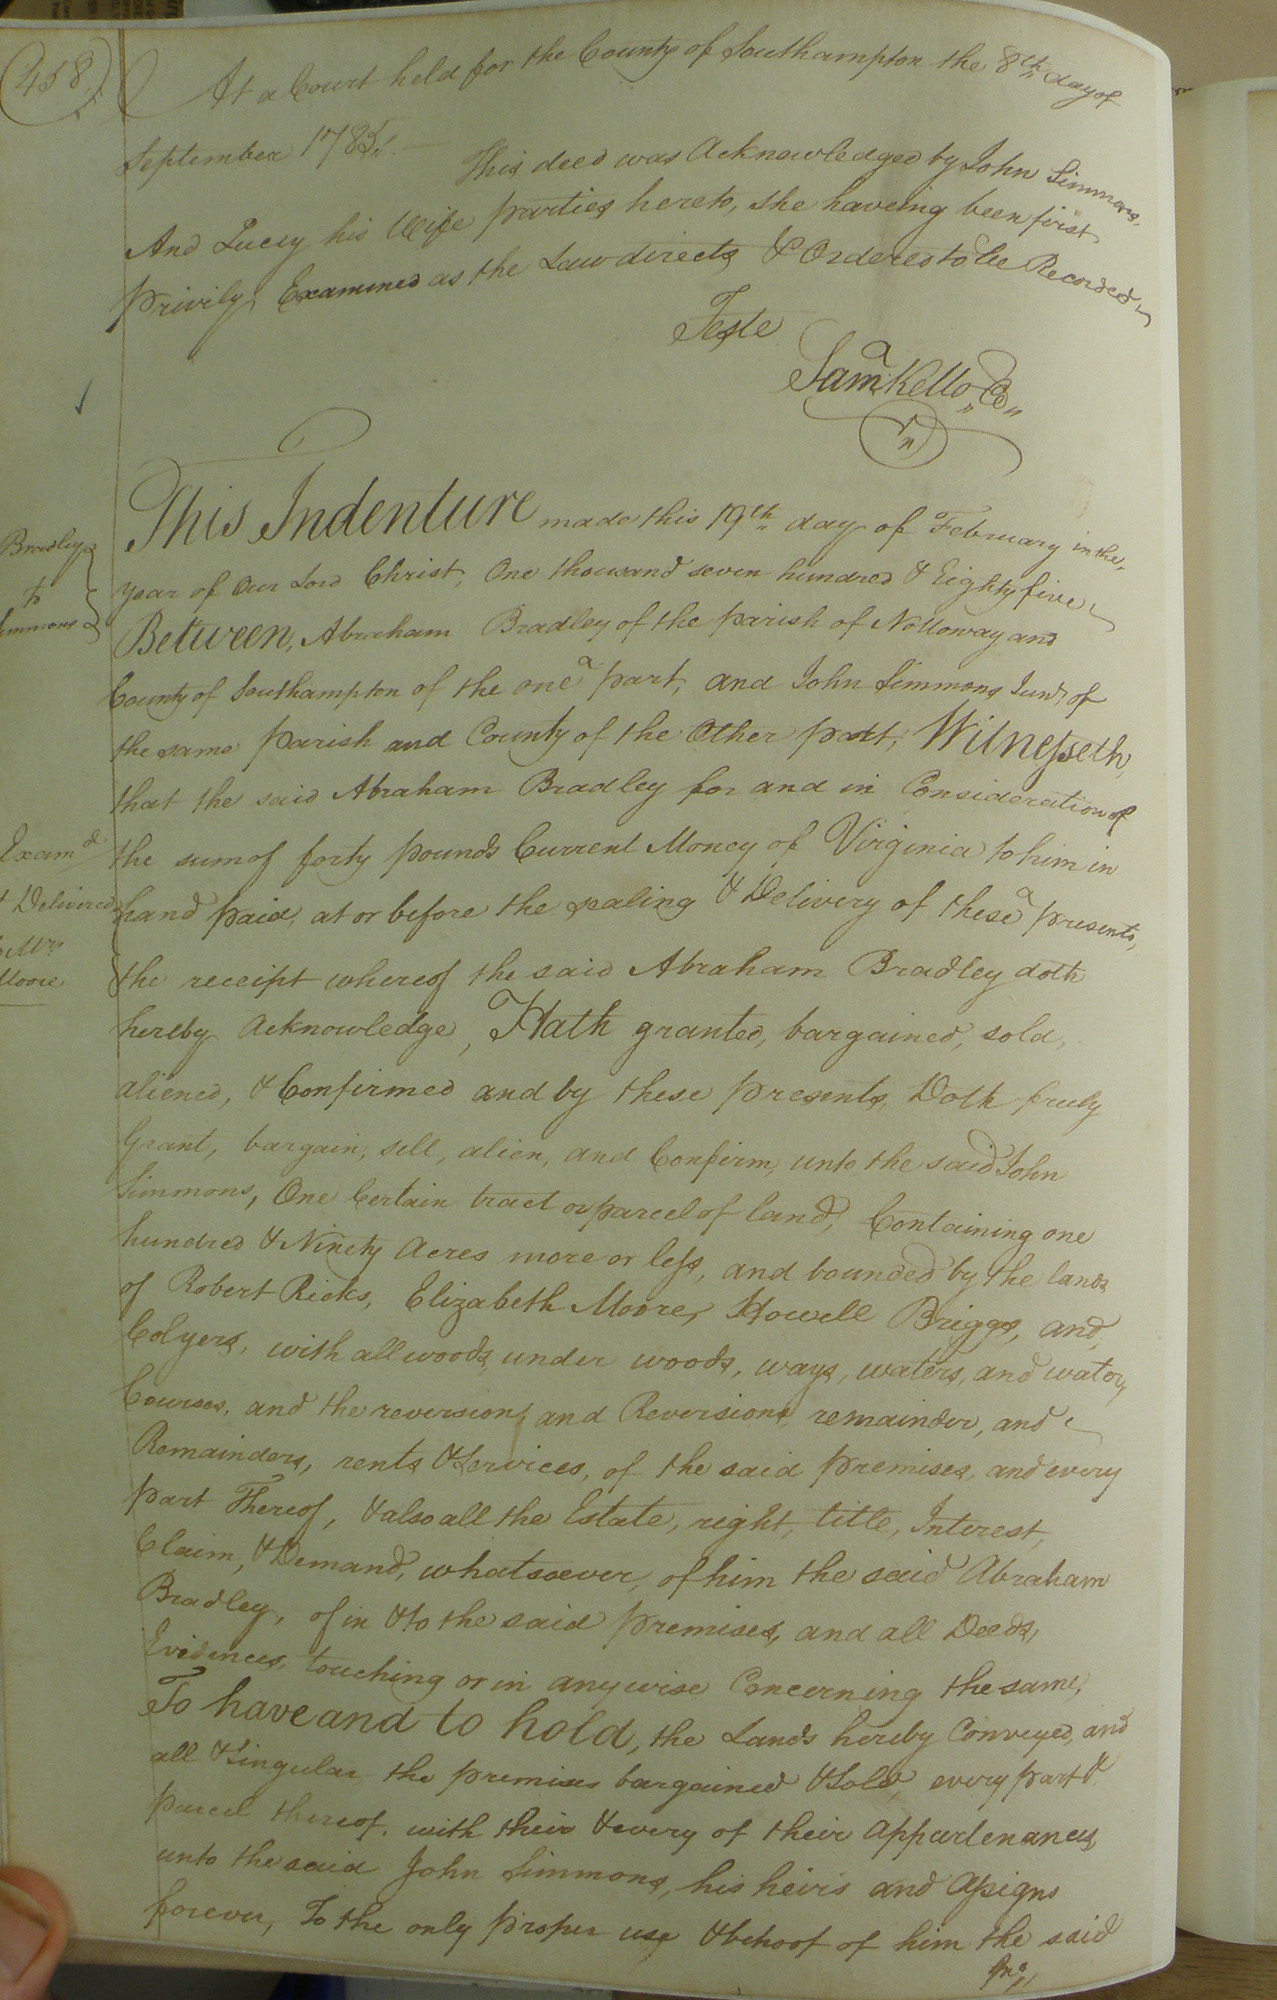 458
At a Court held for the County of Southampton the 8th day of
September 1785
This deed was Acknowledged by John Simmons,
And Lucy his Wife parties hereto, she haveing been first
privily Examined as the Law directs & Ordered to be Recorded
Teste
Saml Kello, Co
Bradley
to
Simmons
This Indenture made this 19th day of February in the
year of Our Lord Christ, One thousand seven hundred & Eighty five
Between, Abraham Bradley of the parish of Nottoway and
County of Southampton of the one part, and John Simmons Junr of
the same parish and County of the Other part, Witnesseth,
that the said Abraham Bradley for and in Consideration of
Examd
the sum of forty pounds Current Money of Virginia to him in
& Delivered
hand paid, at or before the sealing & Delivery of these presents,
Mrs
Moore
the receipt whereof the said Abraham Bradley doth
hereby Acknowledge, Hath granted, bargained, sold,
aliened, & Confirmed and by these presents, Doth fruly
Grant, bargain, sell, alien, and Confirm, unto the said John
Simmons, One Certain tract or parcel of land, Containing one
hundred & Ninety Acres more or less, and bounded by the lands
of Robert Ricks, Elizabeth Moore, Howell Briggs, and,
Colyers, with all woods, under woods, ways, waters, and water,
Courses, and the reversion, and Reversions remainder, and
Remainders, rents & Services, of the said premises, and every
part Thereof, & also all the Estate, right, title, Interest,
Claim, & Demand, whatsoever, of him the said Abraham
Bradley, of in & to the said premises, and all Deeds,
Evidences, touching or in any wise Concerning the same,
To have and to hold, the Lands hereby Conveyed, and
all & Singular the premises bargained & Sold, every part &
parcel thereof, with their & every of their Appurtenances,
unto the said John Simmons, his heirs and Assigns
forever, To the only proper use & behoof of him the said
Jno